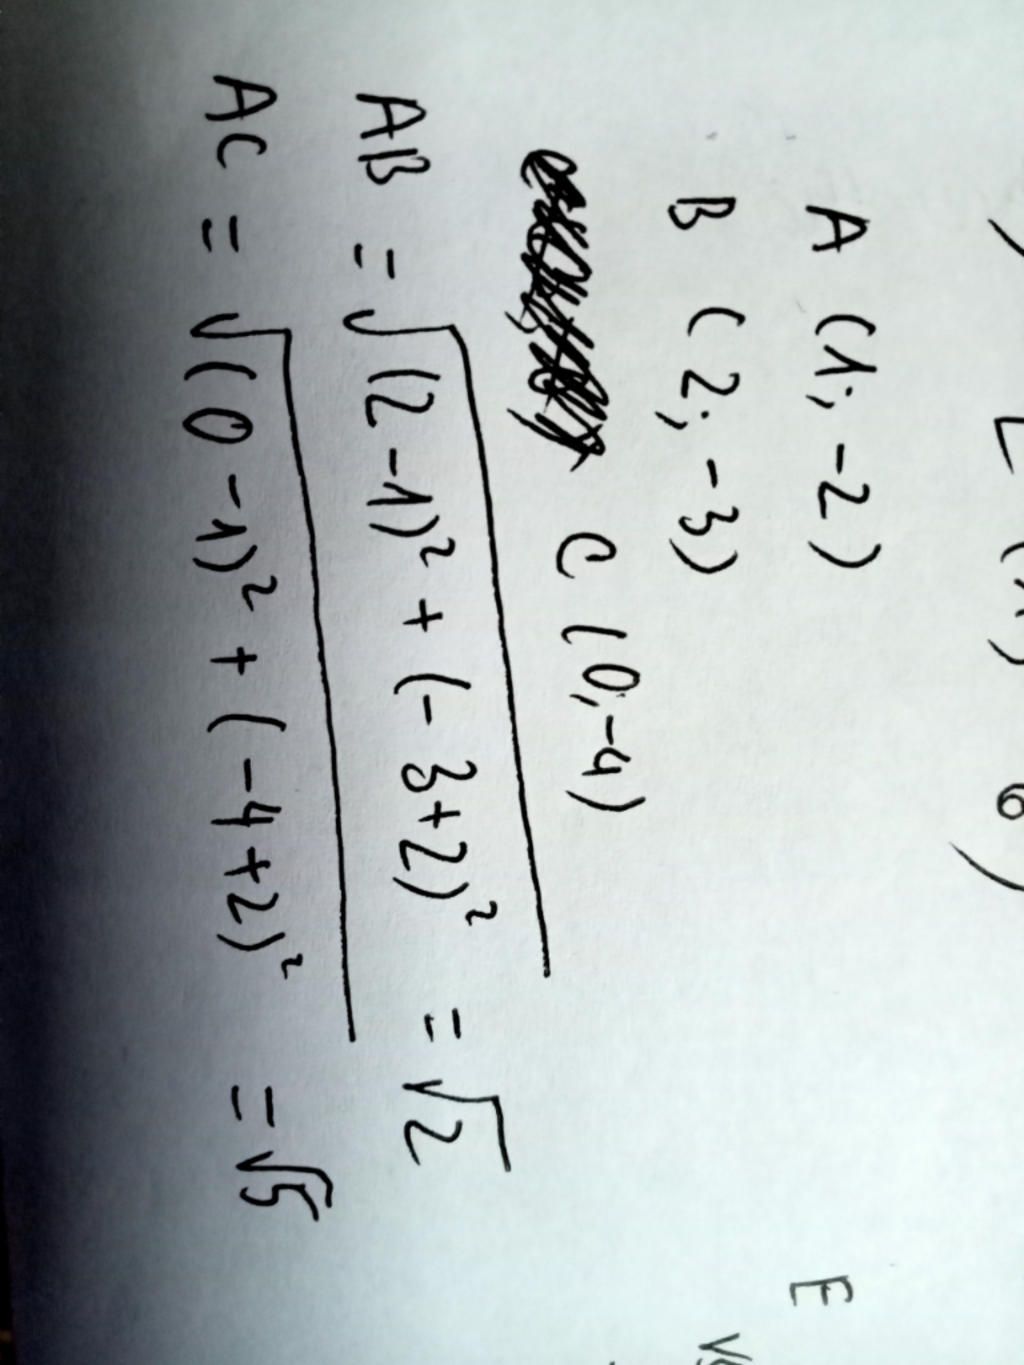 A (1; -2)
B (2; -3)
C (0; -4)
AB = √(2-1)² + (-3+2)² = √2
AC = √(0-1)² + (-4+2)² = √5
E